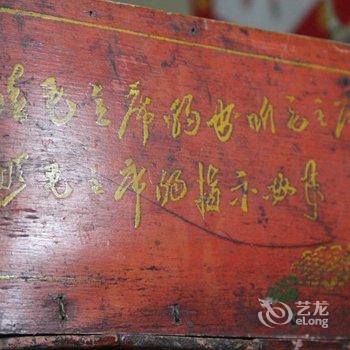 读毛主席的书听毛主席
照毛主席的指示办事
艺龙
eLong